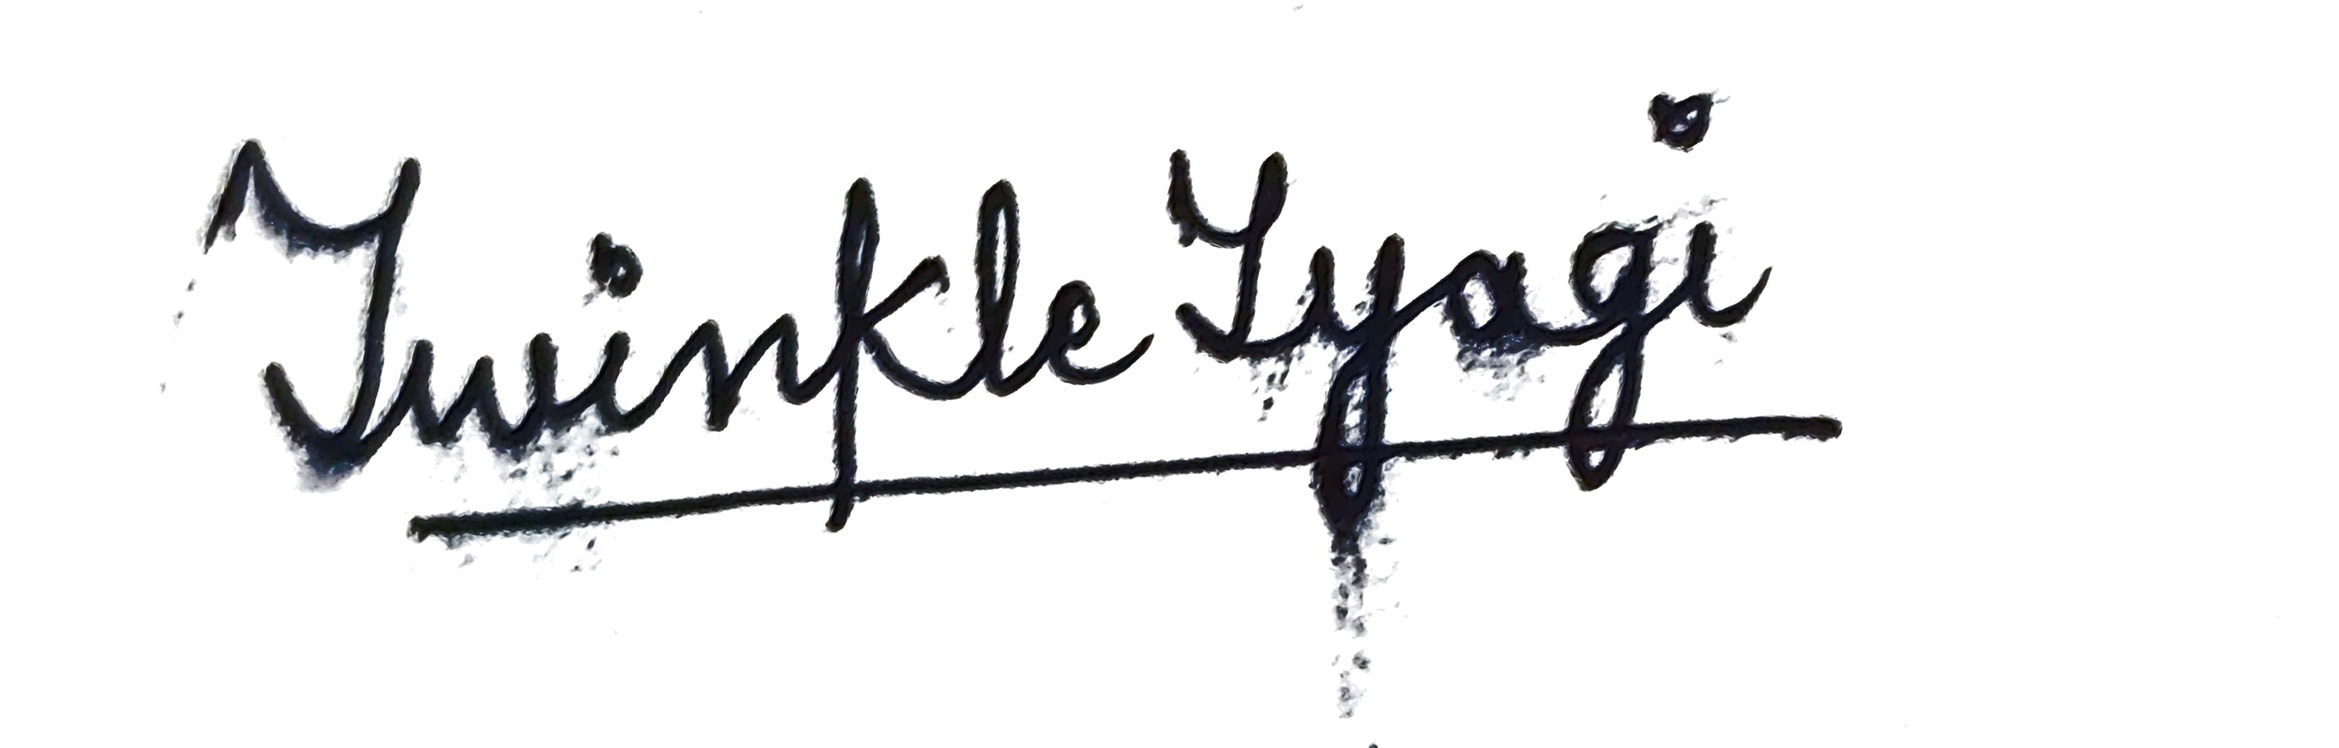 Twinkle Tyagi